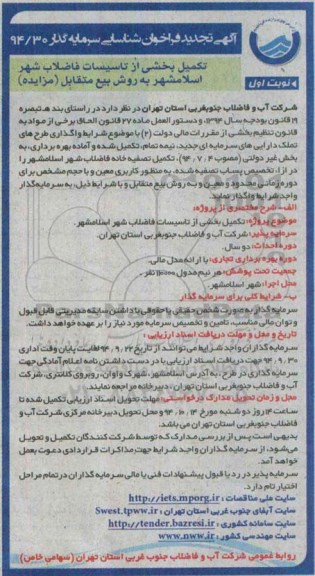 آگهی تجدید فراخوان شناسایی سرمایه گذار ۹۴/۳۰
تکمیل بخشی از تاسیسات فاضلاب شهر
اسلامشهر به روش بیع متقابل (مزایده)
نوبت اول
شرکت آب و فاضلاب جنوبغربی استان تهران در نظر دارد در راستای بند هـ تبصره
۱۹ قانون بودجه سال ۱۳۹۴، و دستور العمل ماده ۲۷ قانون الحاق برخی از مواد به
قانون تنظیم بخشی از مقررات مالی دولت (۲) با موضوع شرایط واگذاری طرح های
تملک دارایی های سرمایه ای جدید، نیمه تمام، تکمیل شده و آماده بهره برداری، به
بخش غیر دولتی (مصوب ۹۴،۰۷،۰۴)، تکمیل تصفیه خانه فاضلاب شهر اسلامشهر را
در ازاء تخصیص پساب تصفیه شده، به منظور کاربری معین و با حجم مشخص برای
دوره زمانی محدود و معین و به روش بیع متقابل و با شرایط ذیل، به سرمایه گذار
واجد شرایط واگذار نماید.
الف- شرح مختصری از پروژه:
موضوع پروژه: تکمیل بخشی از تاسیسات فاضلاب شهر اسلامشهر.
سرمایه پذیر: شرکت آب و فاضلاب جنوبغربی استان تهران.
دوره احداث: دو سال.
دوره بهره برداری تجاری: با ارائه مدل مالی.
جمعیت تحت پوشش: هر نیم مدول ۱۱۰۰۰۰ نفر.
محل اجرا: شهر اسلامشهر.
ب- شرایط کلی برای سرمایه گذار
سرمایه گذار به صورت شخص حقیقی یا حقوقی با داشتن سابقه مدیریتی قابل قبول
و توان مالی مناسب، تامین و تخصیص سرمایه مورد نیاز را بر عهده خواهد داشت.
تاریخ و محل و مهلت دریافت اسناد ارزیابی:
سرمایه گذاران واجد شرایط می توانند از تاریخ ۹۴،۰۹،۲۲ لغایت پایان وقت اداری
۹۴،۰۹،۳۰ جهت دریافت اسناد ارزیابی با در دست داشتن نامه اعلام آمادگی جهت
سرمایه گذاری در طرح، به آدرس اسلامشهر، شهرک واوان، روبروی کلانتری، شرکت
آب و فاضلاب جنوبغربی استان تهران - دبیرخانه مراجعه نمایند.
محل و زمان تحویل مدارک درخواستی: مهلت تحویل اسناد ارزیابی تکمیل شده تا
ساعت ۱۴ روز دوشنبه مورخ ۹۴،۱۰،۱۴ و محل تحویل دبیرخانه مرکزی شرکت آب و
فاضلاب جنوبغربی استان تهران می باشد.
بدیهی است پس از بررسی مدارک که توسط شرکت کنندگان تکمیل و تحویل
می شود، از سرمایه گذاران واجد شرایط جهت مذاکرات قراردادی دعوت بعمل
خواهد آمد.
سرمایه پذیر در رد یا قبول پیشنهادات فنی یا مالی سرمایه گذاران در تمام مراحل
اختیار تام دارد.
سایت ملی مناقصات: http://iets.mporg.ir
سایت آبفای جنوب غربی استان تهران: Swest.tpww.ir
سایت سامانه کشوری: http://tender.bazresi.ir
سایت مهندسی کشور: www.nww.ir
روابط عمومی شرکت آب و فاضلاب جنوب غربی استان تهران (سهامی خاص)